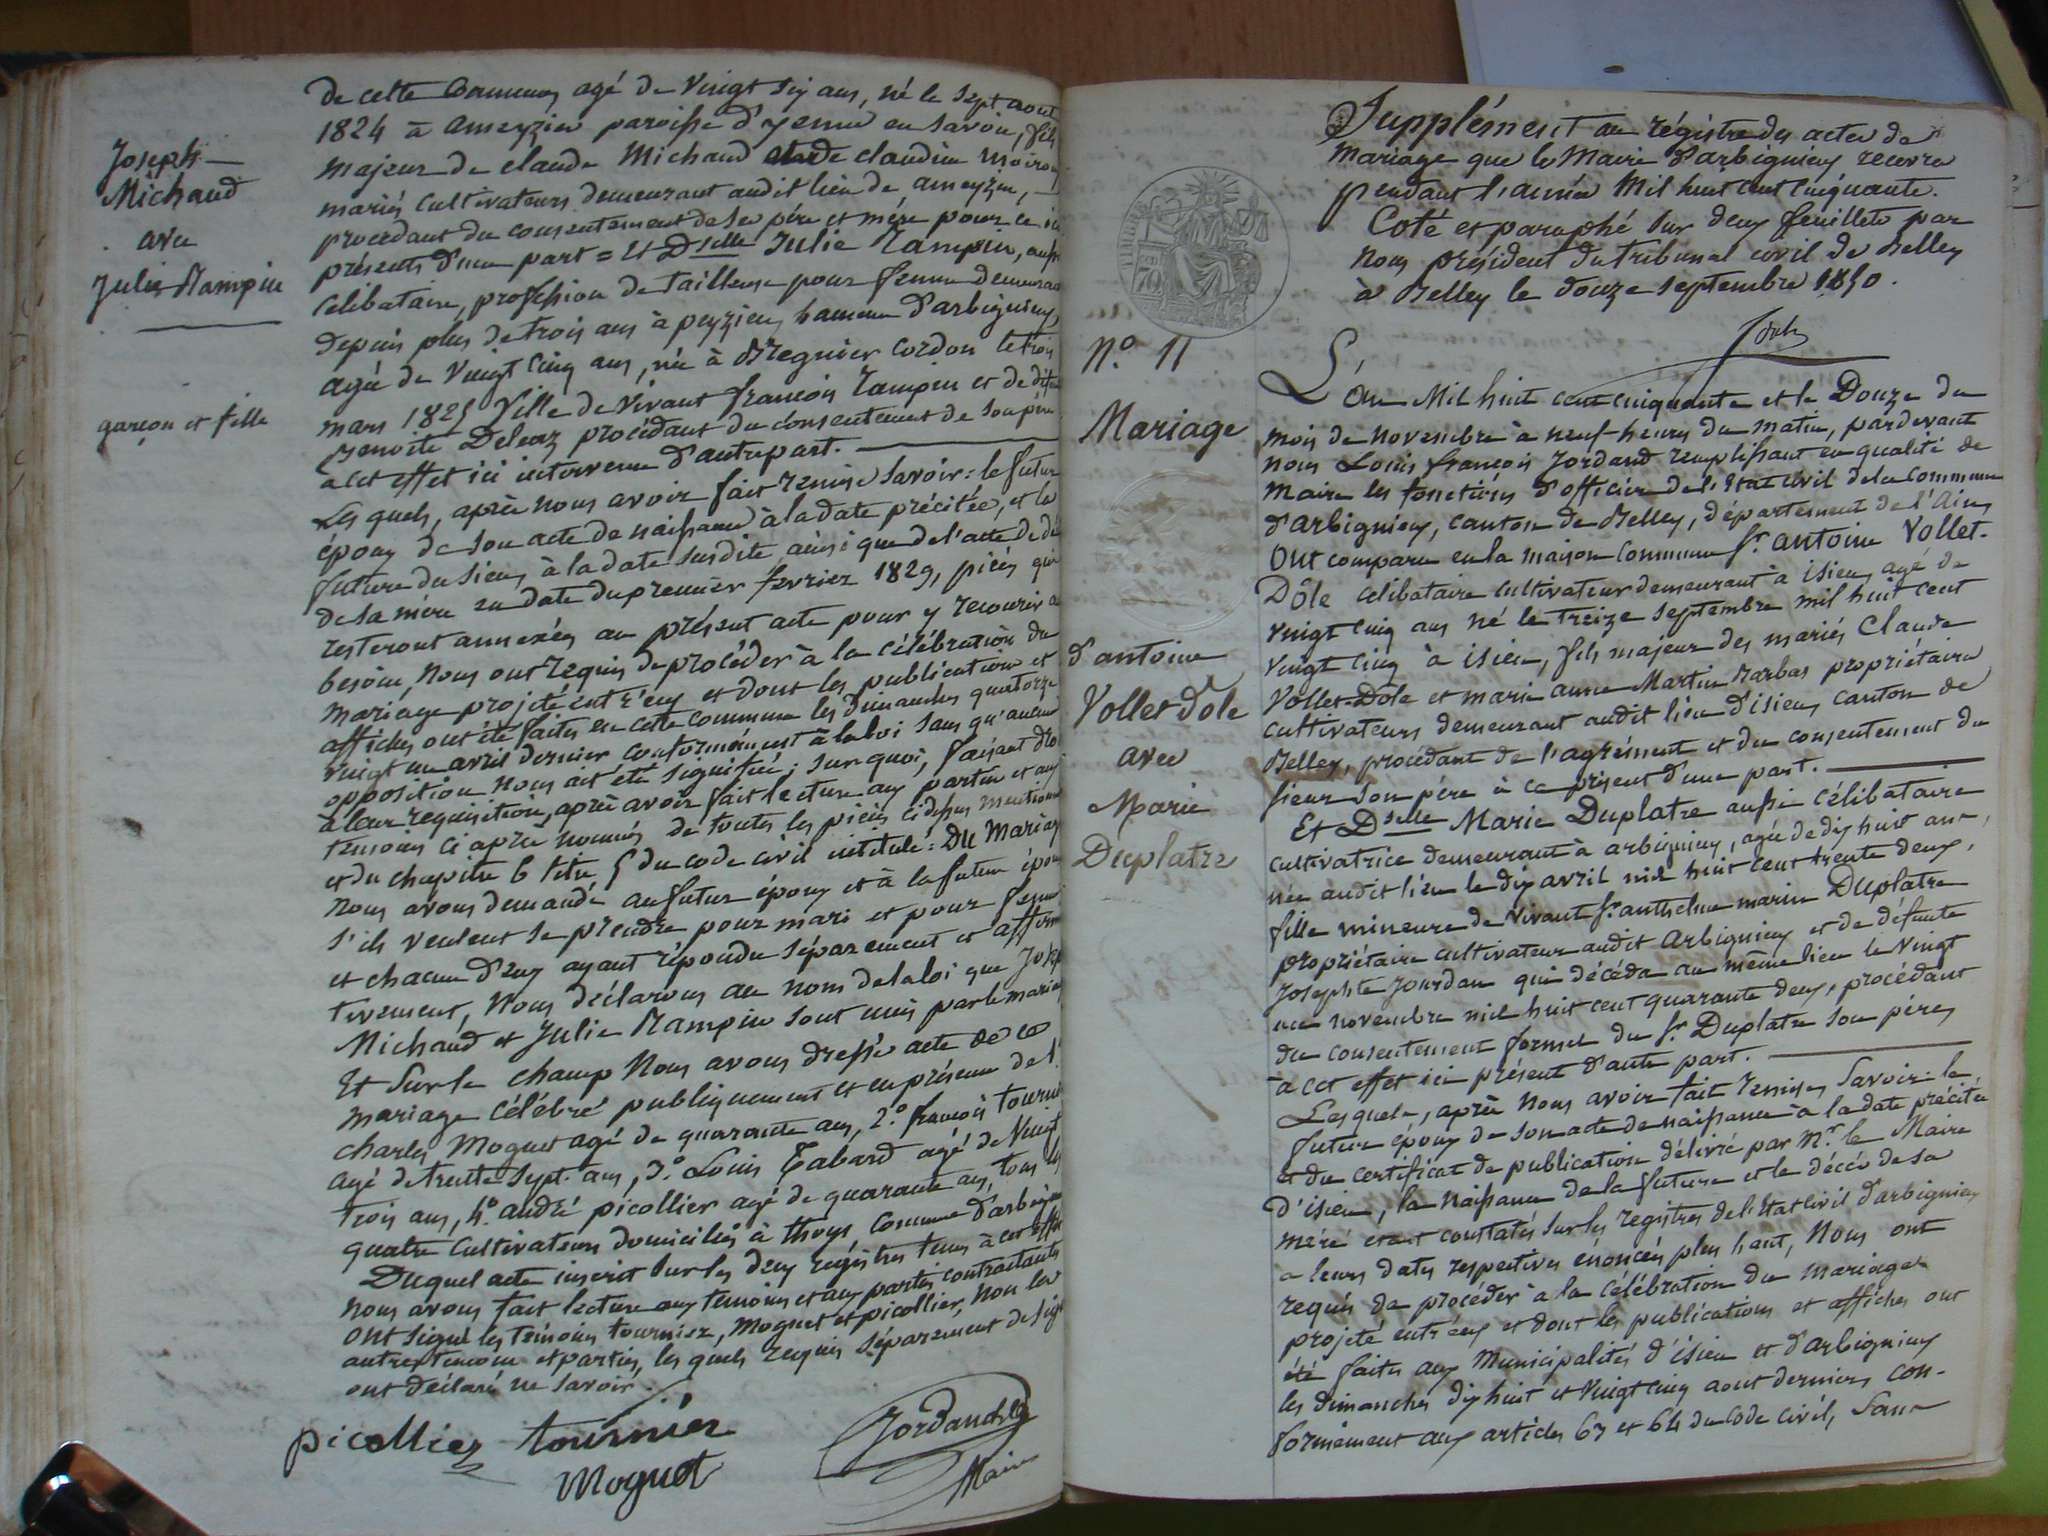 Joseph
Michaud
avec
Julie Rampin
garçon et fille
de cette commune, agé de vingt six ans, né le sept aout
1824 à ameyzieu paroisse d'yenne en savoie, fils
majeur de claude Michaud et de claudine Moiron
mariés cultivateurs demeurant audit lieu de ameyzieu,
procédant du consentement de ses père et mère pour ce ici
présents d'une part = Et Dselle Julie Rampin, aussi
celibataire, profession de tailleuse pour femme demeurant
depuis plus de trois ans à peyzieu hameau d'arbignieu,
agée de vingt cinq ans, née à Bregnier cordon le trois
mars 1825 fille de vivant françois Rampin et de défunte
Benoite procédant du consentement de son père
a cet effet ici intervenu d'autre part.
Les quels, après nous avoir fait remise savoir: le futur
époux de son acte de naissance à la date précitée, et la
future du sien, à la date susdite ainsi que de l'acte de décès
de sa mère en date du premier fevrier 1829, pièces qui
resteront annexées au présent acte pour y recourir au
besoin, Nous ont requis de procéder à la célébration du
mariage projeté entr'eux et dont les publications et
affiches ont été faites en cette commune les dimanches quatorze
vingt un avril dernier conformément à la loi sans qu'aucune
opposition nous ait été signifiée; sur quoi, faisant droit
à leur requisition, après avoir fait lecture aux parties et aux
temoins ci après nommés de toutes les pièces ci dessus mentionnées
et du chapitre 6 titre 5 du code civil intitulé: Du Mariage
nous avons demandé au futur époux et à la future épouse
s'ils veulent se prendre pour mari et pour femme
et chacun d'eux ayant répondu séparement et affirma
tivement, Nous déclarons au nom de la loi que Joseph
Michaud et Julie Rampin sont unis par le mariage
Et sur le champ Nous avons dressé acte de ce
mariage célébré publiquement et en présence de 1°
charles Moguet agé de quarante ans, 2° françois tournier
agé de trente sept ans, 3° Louis Tabard agé de vingt
trois ans, 4° andré picollier agé de quarante ans, tous les
quatre cultivateurs domiciliés à thoys commune d'arbignieu
Duquel acte inscrit sur les deux régistres tenus à cet effet
nous avons fait lecture aux temoins et aux parties contractantes
ont signé les témoins tournier, Moguet et picollier, Non les
autres temoins et parties, les quels requis séparement de signer
ont déclaré ne savoir.
picollier tournier
Moguet
Maire
Supplément au régistre des actes de
Mariage que le Maire d'arbignieu recevra
pendant l'année Mil huit cent cinquante.
Coté et paraphé sur deux feuillets par
nous président du tribunal civil de Belley
à Belley le douze septembre 1850.
N° 11
Mariage
d'antoine
Vollet-Dôle
avec
Marie
Duplatre
L'an Mil huit cent cinquante et le Douze du
mois de novembre à neuf heures du matin, pardevant
nous Louis françois Jordand remplissant en qualité de
Maire les fonctions d'officier de l'Etat civil de la commune
d'arbignieu, canton de Belley, département de l'Ain,
Ont comparu en la maison commune Sr antoine Vollet-
Dôle celibataire cultivateur demeurant à isieu, agé de
vingt cinq ans né le treize septembre mil huit cent
vingt cinq à isieu, fils majeur des mariés Claude
Vollet-Dôle et marie anne Martin Barbas propriétaires
cultivateurs demeurant audit lieu d'isieu canton de
Belley, procédant de l'agrément et du consentement du
sieur son père à ce présent d'une part.
Et Dselle Marie Duplatre aussi célibataire
cultivatrice demeurant à arbignieu, agée de dix huit ans,
née audit lieu le dix avril mil huit cent trente deux,
fille mineure de vivant Sr anthelme marin Duplatre
propriétaire cultivateur audit Arbignieu et de défunte
Josephte Jourdan qui décéda au même lieu le vingt
un novembre mil huit cent quarante deux, procédant
du consentement formel du Sr Duplatre son père,
à cet effet ici présent d'autre part.
Lesquels, après nous avoir fait remise, savoir: le
futur époux de son acte de naissance à la date précitée
et du certificat de publication délivré par Mr le Maire
d'isieu, la naissance de la future et le décès de sa
mère étant constatés sur les registres de l'Etat civil d'arbignieu
a leurs dates respectives énoncées plus haut, Nous ont
requis de procéder à la célébration du mariage
projeté entr'eux et dont les publications et affiches ont
été faites aux Municipalités d'isieu et d'arbignieu
les dimanches dix huit et vingt cinq aout derniers con-
formément aux articles 63 et 64 du Code civil, sans